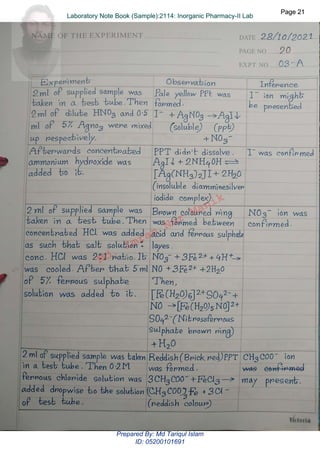 Laboratory Note Book (Sample):2114: Inorganic Pharmacy-II Lab
Page 21
NAME OF THE EXPERIMENT
DATE 28/10/2021
PAGE NO 20
EXPT NO 03-A
Experiment
Observation
Inference
2 ml of supplied sample was
taken in a test tube. Then
2 ml of dilute HNO3 and 0.5
ml of 5% AgNO3 were mixed
up respectively.
Pale yellow PPt was
formed.
I⁻ + AgNO3 → AgI↓
(soluble) (ppt)
+ NO3⁻
I⁻ ion might
be presented
Afterwards concentrated
ammonium hydroxide was
added to it.
PPT didn't dissolve.
AgI↓ + 2NH4OH ⇌
[Ag(NH3)2]I + 2H2O
(insoluble diamminesilver
iodide complex)
I⁻ was confirmed
2 ml of supplied sample was
taken in a test tube. Then
concentrated HCl was added
as such that salt solution :
conc. HCl was 2:1 ratio. It
was cooled. After that 5 ml
of 5% ferrous sulphate
solution was added to it.
Brown coloured ring
was formed between
acid and ferrous sulphate
layes.
NO3⁻ + 3Fe2+ + 4H+→
NO + 3Fe2+ +2H2O
Then,
[Fe(H2O)6]2+SO42- +
NO →[Fe(H2O)5NO]2+
SO42- (Nitrosoferrous
sulphate brown ring)
+ H2O
NO3⁻ ion was
confirmed.
2 ml of supplied sample was taken
in a test tube. Then 0.2M
ferrous chloride solution was
added dropwise to the solution
of test tube.
Reddish (Brick red) PPT
was formed.
3CH3COO⁻ + FeCl3 →
(CH3COO)3Fe + 3Cl⁻
(reddish colour)
CH3COO⁻ ion
was confirmed
may present.
Victoria
Prepared By: Md Tariqul Islam
ID: 05200101691